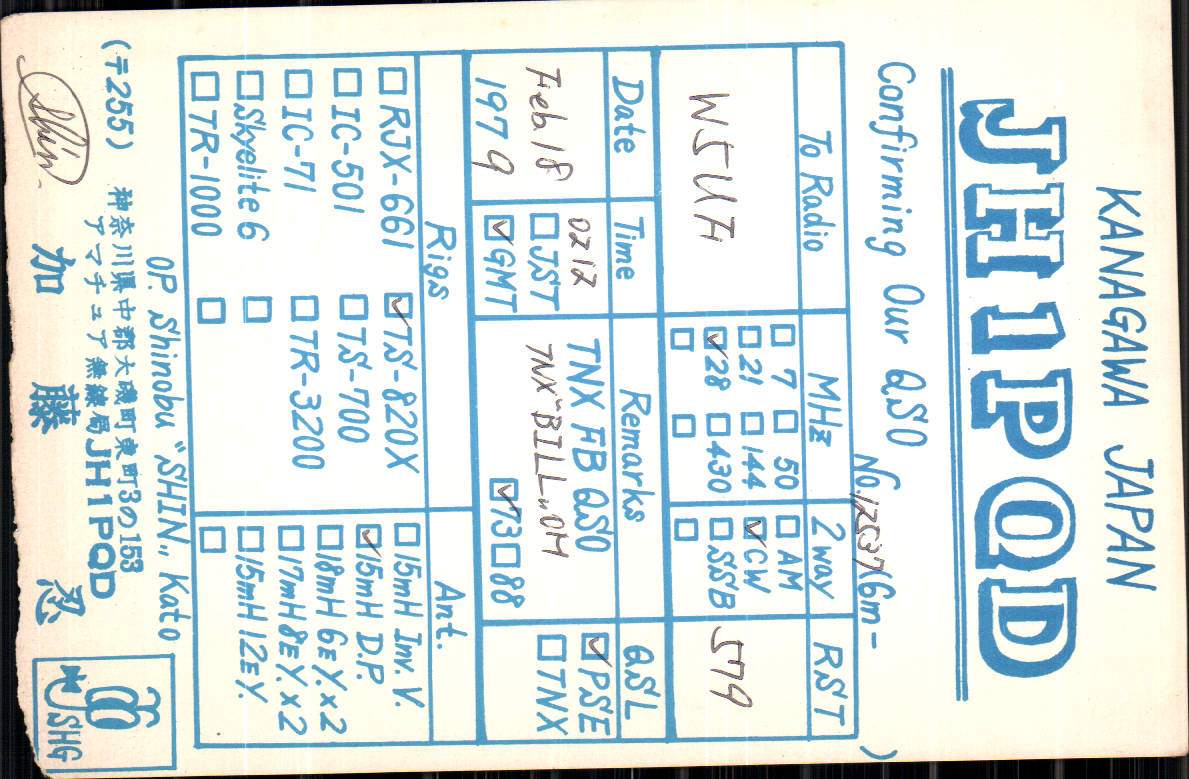 KANAGAWA JAPAN
JH1PQD
Confirming Our QSO No.12537(6m- )
To Radio MHz 2way RST
W5UH
□ 7 □ 50
□ 21 □ 144
☑ 28 □ 430
□ □
□ AM
☑ CW
□ SSB
□
579
Date Time Remarks QSL
Feb. 18
1979
0212
□ JST
☑ GMT
TNX FB QSO
TNX "BILL" OM
☑ 73 □ 88
☑ PSE
□ TNX
Rigs Ant.
□ RJX-661 ☑ TS-820X
□ IC-501 □ TS-700
□ IC-71 □ TR-3200
□ Skyelite 6 □
□ TR-1000 □
□ 15mH Inv. V.
☑ 15mH D.P.
□ 18mH 6εY.×2
□ 17mH 8εY.×2
□ 15mH 12εY.
□
OP. Shinobu "SHIN" Kato
(〒255) 神奈川県中郡大磯町東町3の153
アマチュア無線局JH1PQD
加藤忍
Shin.
JSHG